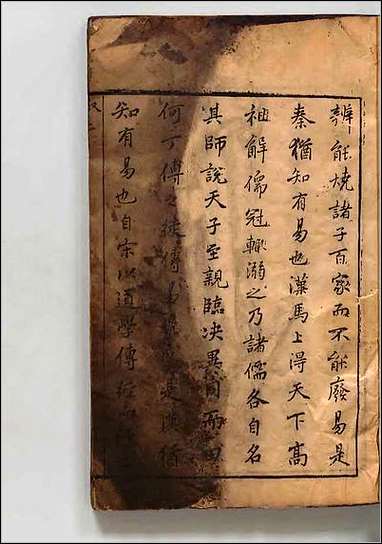 辨能燒諸子百家而不能廢易是
秦猶知有易也漢馬上得天下高
祖解儒冠輒溺之乃諸儒各自名
其師說天子至親臨決異同而田
何丁傅之徒傅易是漢猶
知有易也自宋以道學傅